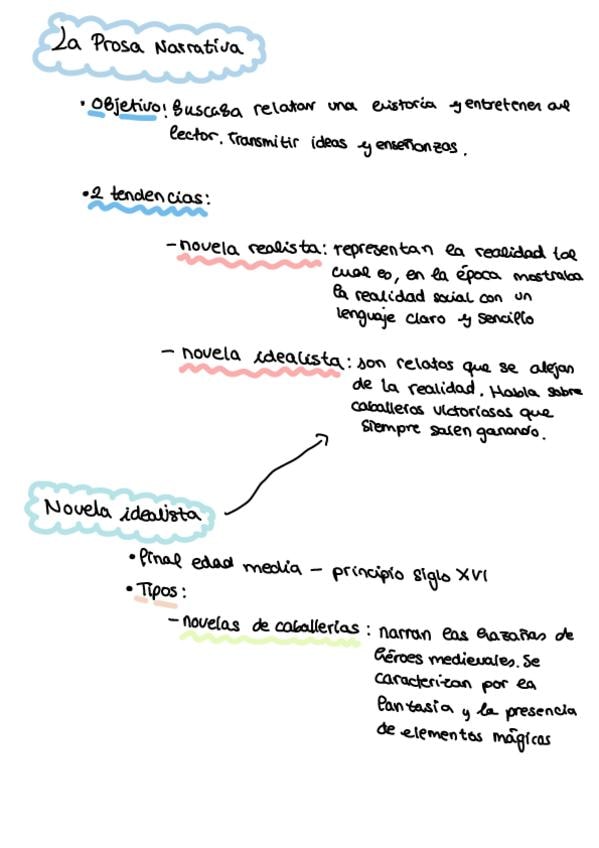 La Prosa Narrativa
• Objetivo: Buscaba relatar una historia y entretener al
lector. Transmitir ideas y enseñanzas.
• 2 tendencias:
- novela realista: representan la realidad tal
cual es, en la época mostraba
la realidad social con un
lenguaje claro y sencillo
- novela idealista: son relatos que se alejan
de la realidad. Habla sobre
caballeros victoriosos que
siempre salen ganando.
Novela idealista
• final edad media - principio siglo XVI
• Tipos:
- novelas de caballerías: narran las hazañas de
héroes medievales. Se
caracterizan por la
fantasía y la presencia
de elementos mágicos